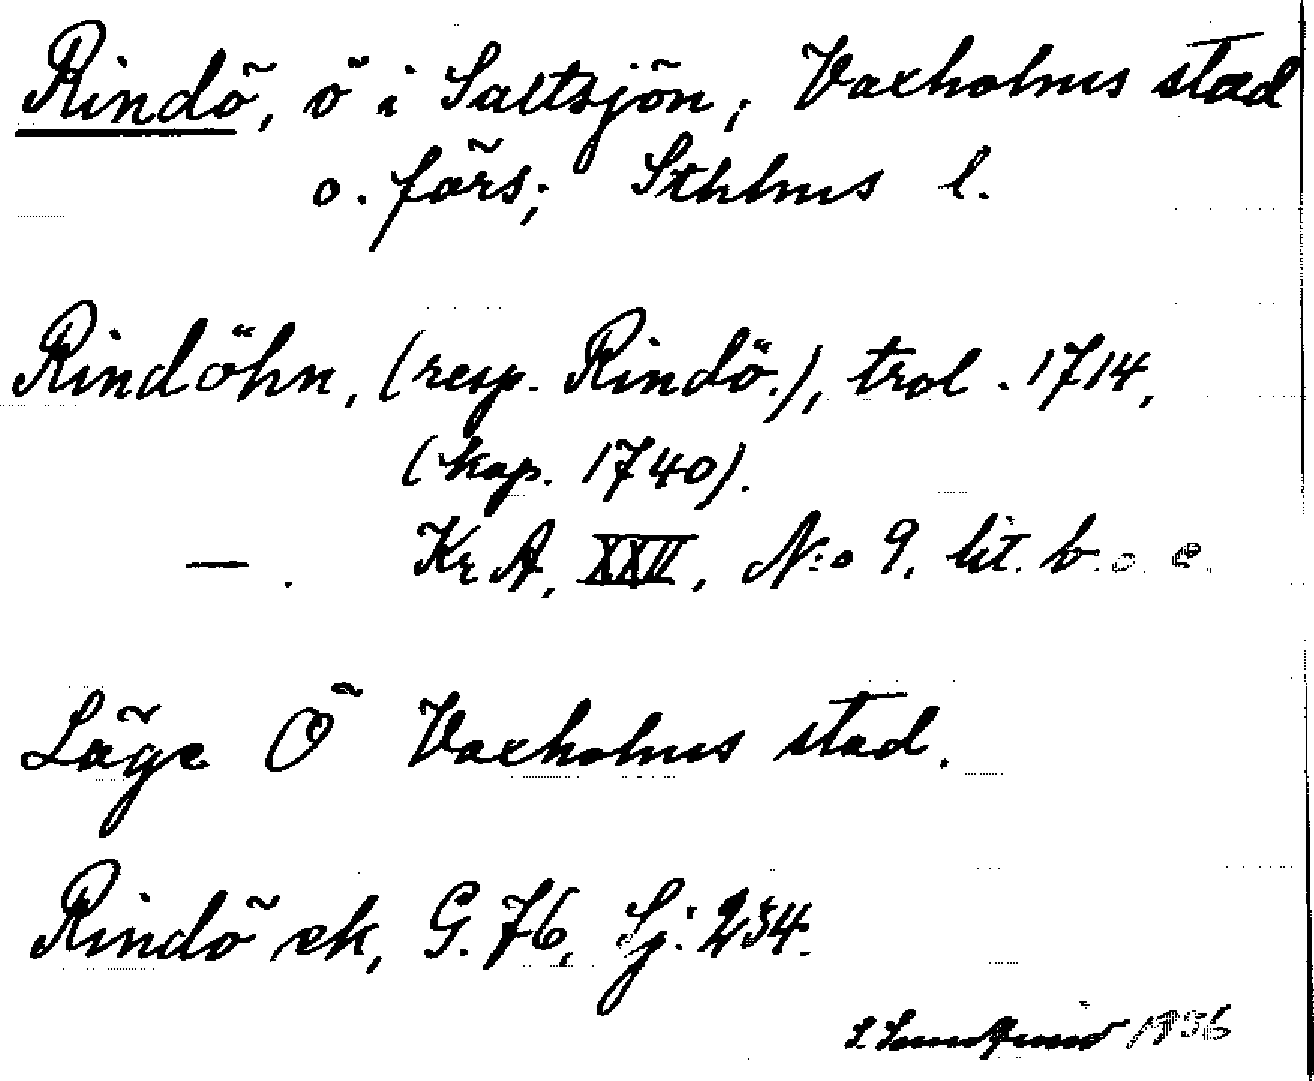 Rindö, ö i Saltsjön, Vaxholms stad
o. förs; Sthlms l.
Rindöhn, (resp. Rindö.), trol. 1714,
(kop. 1740).
— . KrA, XXII, N:o 9, lit. b. o. e.
Läge Ö Vaxholms stad.
Rindö ek, G. 76, Sj: 234.
1936